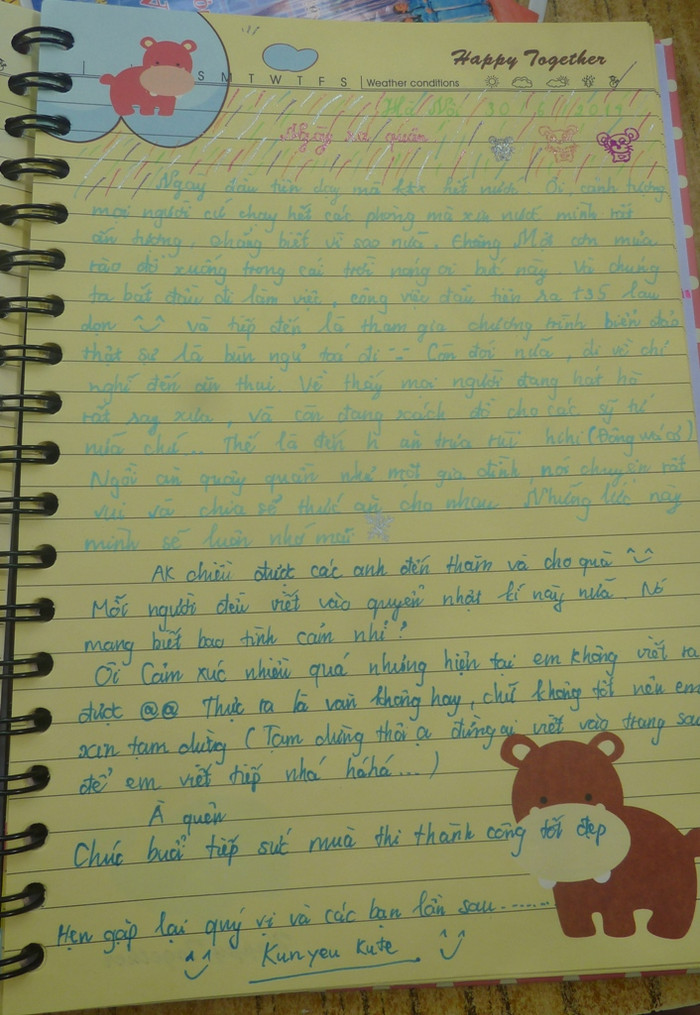 Happy Together
S M T W T F S Weather conditions
Hà Nội 30 6 2011
Ngày ra quân
Ngày đầu tiên dạy mà ktx hết nước. Ôi, cảnh tượng
mọi người cứ chạy hết các phòng mà xin nước mình rất
ấn tượng, chẳng biết vì sao nữa. Chắng Một cơn mưa
rào đổ xuống trong cái trời nóng oi bức này. Và chúng
ta bắt đầu đi làm việc, công việc đầu tiên ra t35 lau
dọn ^^ và tiếp đến là tham gia chương trình biển đảo
thật sự là bùn ngủ toá đi -- Còn đói nữa, đi về chỉ
nghĩ đến ăn thui. Về thấy mọi người đang hát hò
rất say xưa, và còn đang xách đồ cho các sỹ tử
nữa chứ.. Thế là đến h ăn trưa rùi hihi (Đông vui cơ)
Ngồi ăn quây quần như một gia đình, nói chuyện rất
vui và chia sẻ thức ăn cho nhau. Những lúc này
mình sẽ luôn nhớ mãi
AK chiều được các anh đến thăm và cho quà ^^
Mỗi người đều viết vào quyển nhật kí này nữa. Nó
mang biết bao tình cảm nhỉ?
Ôi Cảm xúc nhiều quá nhưng hiện tại em không viết ra
được @@ Thực ra là văn không hay, chữ không tốt nên em
xin tạm dừng (Tạm dừng thôi ạ đừng ai viết vào trang sau
để em viết tiếp nhá háhá...)
À quên
Chúc buổi tiếp sức muà thi thành công tốt đẹp
Hẹn gặp lại quý vị và các bạn lần sau.......
Kunyeu Kute